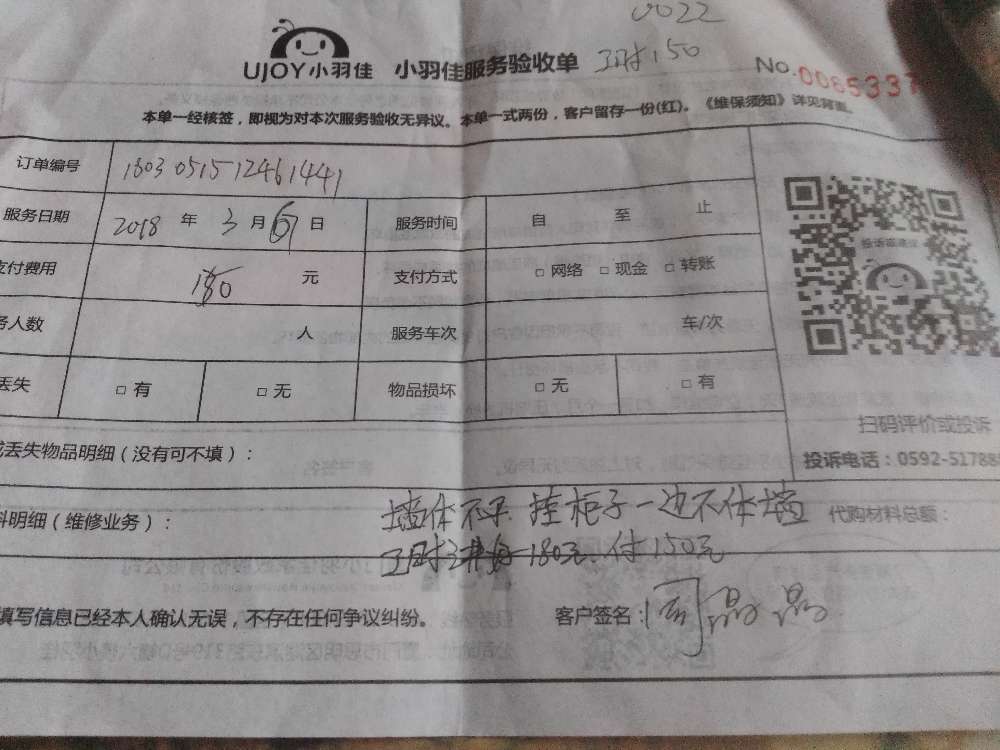 0022
UJOY小羽佳 小羽佳服务验收单 工时150
No.0065337
本单一经核签，即视为对本次服务验收无异议。本单一式两份，客户留存一份(红)。《维保须知》详见背面。
订单编号 180305151246 1441
服务日期 2018 年 3 月 日 服务时间 自 至 止
支付费用 元 支付方式 □ 网络 □ 现金 □ 转账
务人数 人 服务车次 车/次
丢失 □ 有 □ 无 物品损坏 □ 无 □ 有
投诉或建议
扫码评价或投诉
投诉电话：0592-51788
或丢失物品明细（没有可不填）：
料明细（维修业务）： 墙体不平 挂柜子一边不体墙 代购材料总额：
工时 180元 付150元
填写信息已经本人确认无误，不存在任何争议纠纷。 客户签名： 晶晶